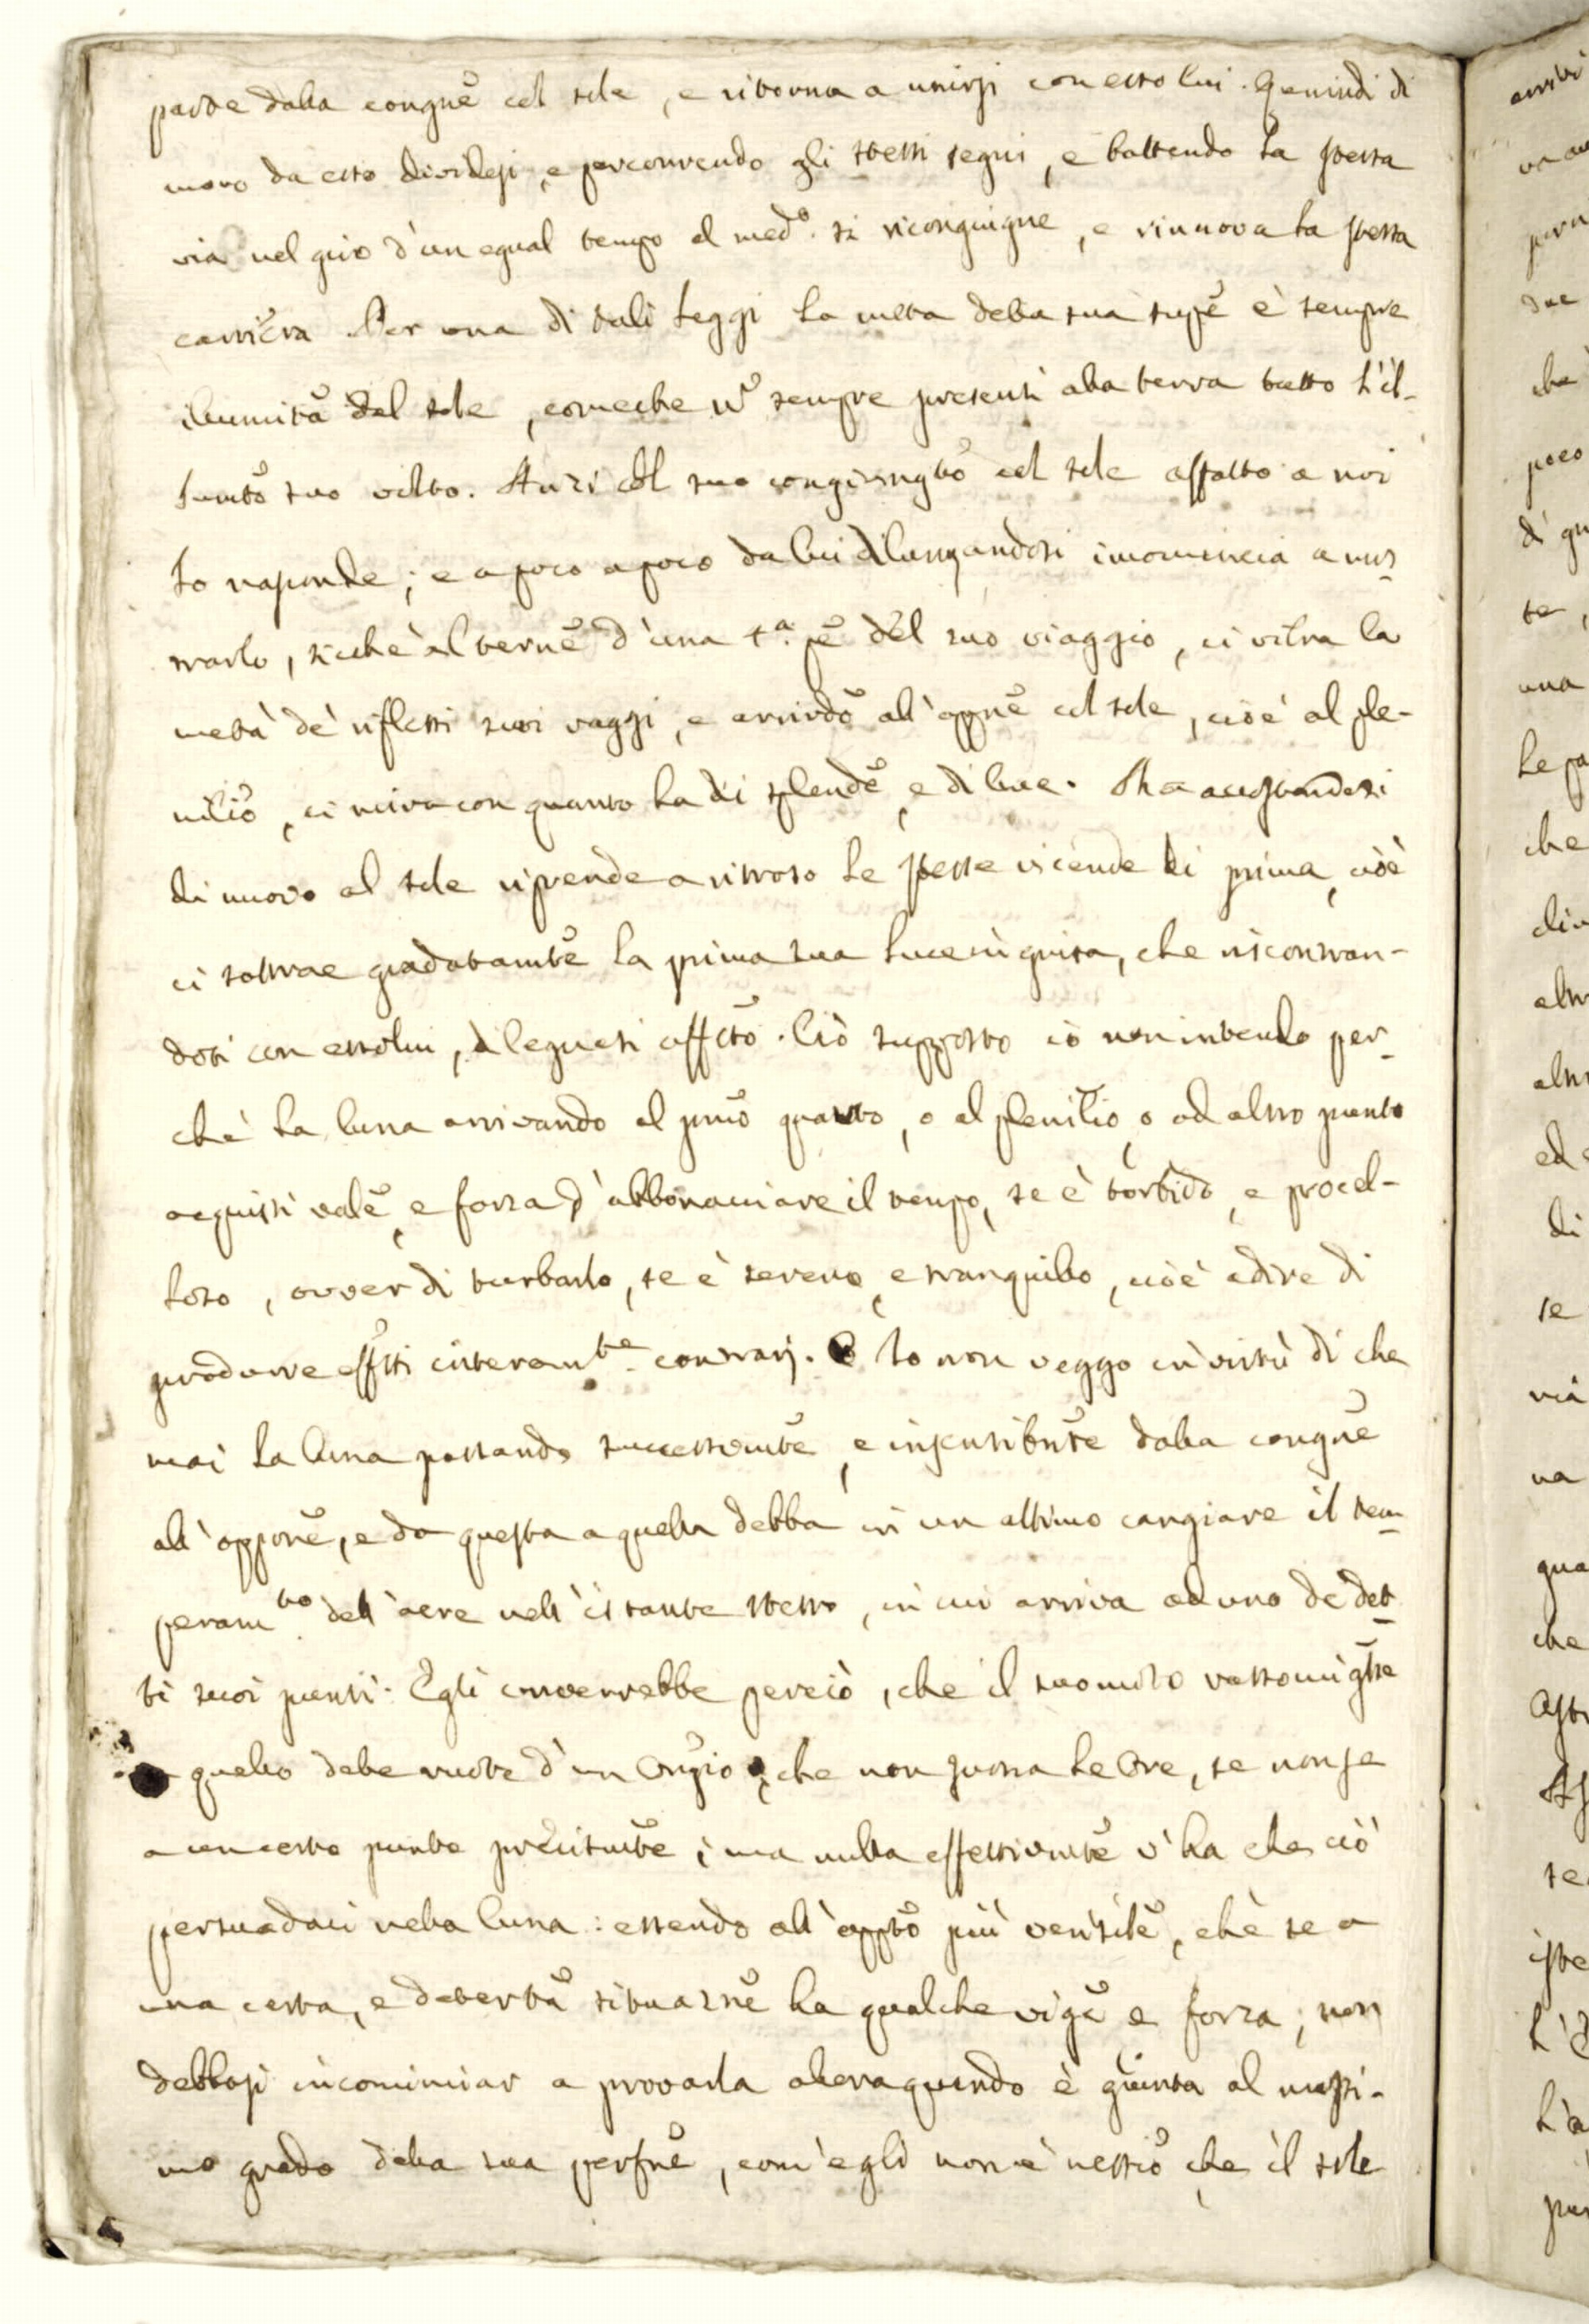 parte dalla congnẽ col sole, e ritorna a unirsi con esso lui. Quindi di
novo da esso dividesi, e percorrendo gli stessi segni, e battendo la stessa
via nel giro d'un egual tempo al medº. si ricongiugne, e rinnova la stessa
carriera. Per una di tali leggi la metà della sua supẽ è sempre
illuminatã dal sole, comeche nõ sempre presenti alla terra tutto l'il-
luminatõ suo volto. Anzi col suo congiungtõ col sole affatto a noi
lo nasconde; e a poco a poco da lui dilungandosi incomincia a mos
trarlo, sicche al ternẽ d'una 4ª. pẽ del suo viaggio, ci vibra la
metà de' riflessi suoi raggi, e arrivdõ all'oppnẽ col sole, cioè al ple-
nilio, ci mira con quanto ha di splendẽ, e di luce. Ma accostandosi
di nuovo al sole riprende a ritroso le stesse vicende di prima, cioè
ci sottrae gradatambẽ la prima sua luce in guisa, che riscontran-
dosi con essolui, dileguasi affattõ. Ciò supposto io non intendo per
chè la luna arrivando al primõ quarto, o al plenilio, o ad altro punto
acquisti valẽ, e forza d'abbonacciare il tempo, se è torbido, e procel-
loso, ovver di turbarlo, se è sereno, e tranquillo, cioè a dire di
produrre effetti interamte. contrarj. Io non veggo in virtù di che
mai la luna passando successivmtẽ, e insensibilmtẽ dalla congnẽ
all'opponẽ, e da questa a quella debba in un attimo cangiare il tem
peramto. dell'aere nell'istante stesso, in cui arriva ad uno de' det
ti suoi punti. Egli converrebbe perciò, che il suo moto rassomiglẽ
a quello delle ruote d'un Orgio, che non suona le Ore, se non se
a un certo punto precismtẽ; ma nulla effettivmtẽ v'ha che ciò
persuadaci nella luna: essendo all'opptõ più verisilẽ, chè se a
una certa, e determtã situaznẽ ha qualche vigẽ e forza; non
debbasi incominciar a provarla allora quando è giunta al massi-
mo grado della sua perfnẽ, com'egli non è nessiõ che il sole